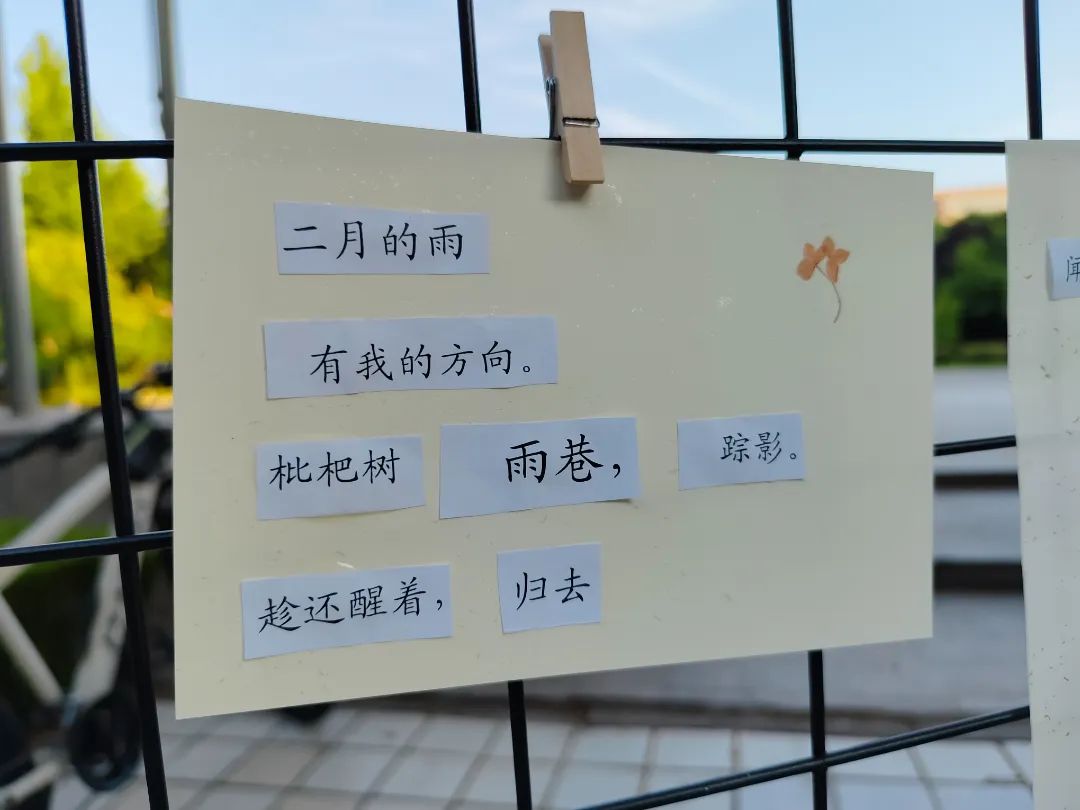 二月的雨
有我的方向。
枇杷树 雨巷， 踪影。
趁还醒着， 归去
闻